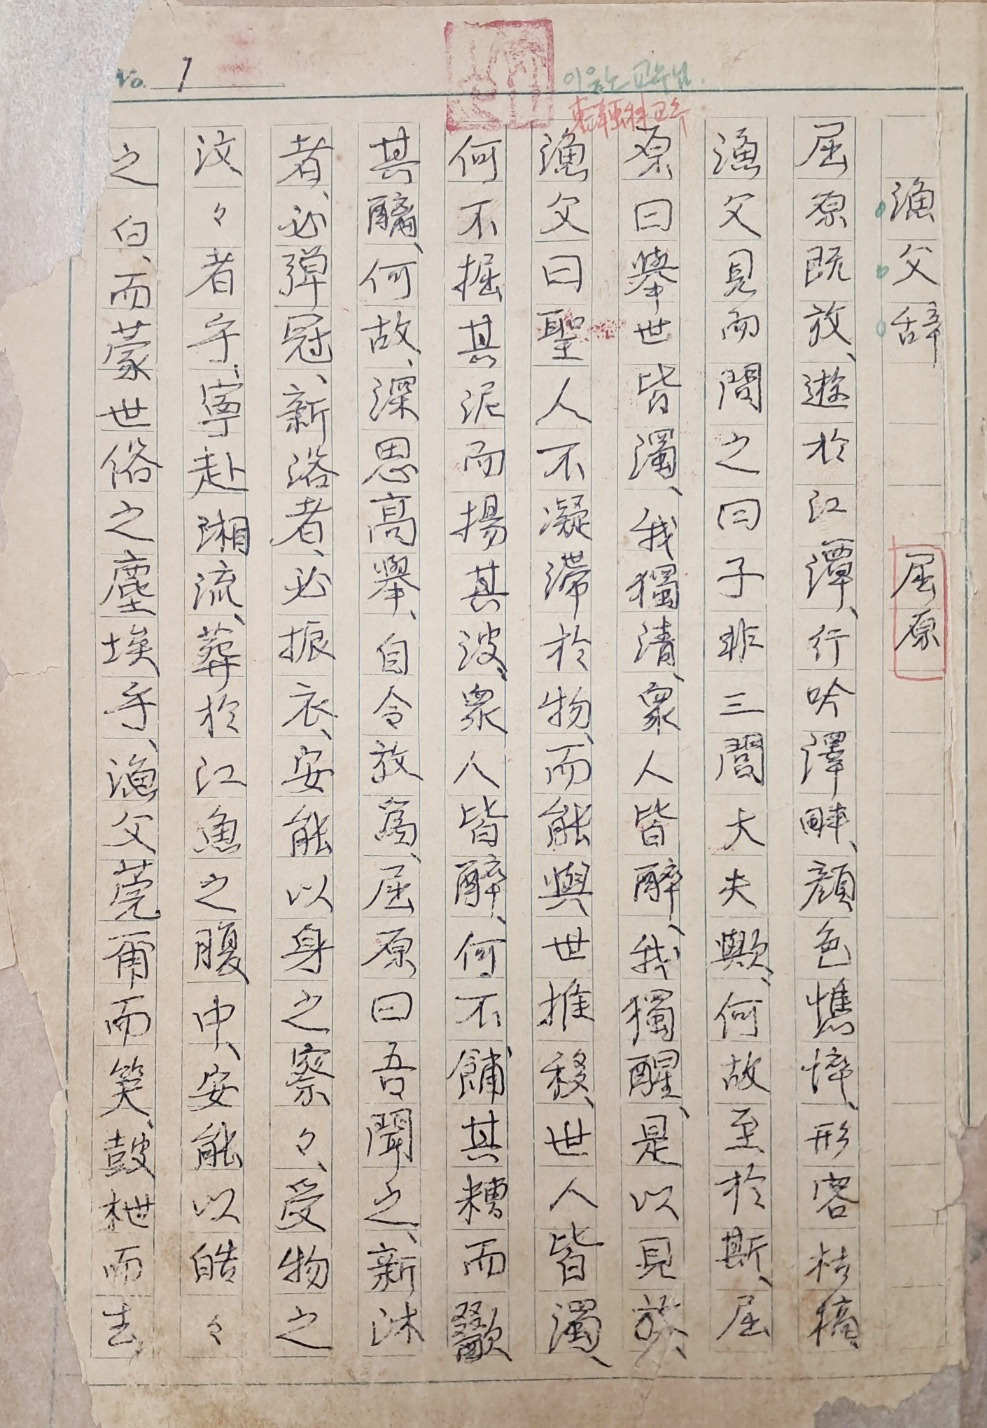 No. 1
이응노 교수님
漁父辞
屈原
屈原既放、遊於江潭、行吟澤畔、顔色憔悴、形容枯槁、
漁父見而問之曰子非三閭大夫歟、何故至於斯、屈
原曰擧世皆濁、我獨清、衆人皆醉、我獨醒、是以見放、
漁父曰聖人不凝滯於物、而能與世推移、世人皆濁、
何不掘其泥而揚其波、衆人皆醉、何不餔其糟而歠
其醨、何故、深思高擧、自令放為、屈原曰吾聞之、新沐
者、必弾冠、新浴者、必振衣、安能以身之察々、受物之
汶々者乎、寧赴湘流、葬於江魚之腹中、安能以皓々
之白、而蒙世俗之塵埃乎、漁父莞爾而笑、鼓枻而去、